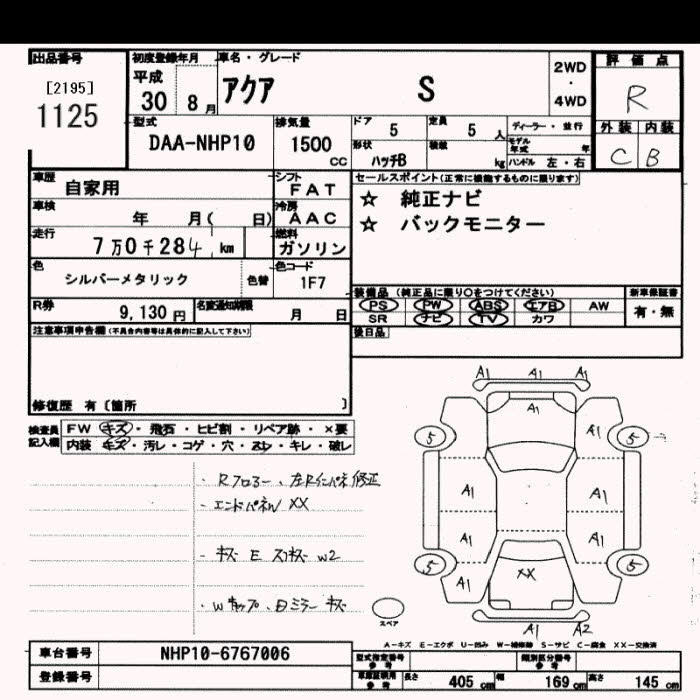 出品番号 初度登録年月 車名・グレード 評価点
[2195] 平成 アクア S 2WD・4WD R
1125 30 8月
型式 排気量 ドア 定員 ディーラー・並行 外装 内装
DAA-NHP10 1500 CC 5 5人 モデル年式 年 C B
形状 積載
ハッチB kg ハンドル 左・右
車歴 自家用 シフト FAT セールスポイント(正常に機能するものに限ります)
車検 年 月( 日) 冷房 AAC ☆ 純正ナビ
走行 7万0千284 km 燃料 ガソリン ☆ バックモニター
色 シルバーメタリック 色替 色コード 1F7
装備品 (純正品に限り○をつけてください) 新車保証書
R券 9,130円 名変通知期限 月 日 PS PW ABS エアB AW 有・無
SR ナビ TV カワ
注意事項申告欄(不具合内容等は具体的に記入して下さい) 後日品
修復歴 有〔箇所 〕
検査員記入欄 FW キズ・飛石・ヒビ割・リペア跡・×要
内装 キズ・汚レ・コゲ・穴・スレ・キレ・破レ
A1 A1 A1
A1
A1
5 5
A1 A1
A1 A1
5 5
A1 XX
A1 A2
・Rフロアー、左Rインパネ修正
・エンドパネル XX
・キズ E スリキズ W2
・Wキャップ、日ミラー キズ
スペア
A-キズ E-エクボ U-凹み W-補修跡 S-サビ C-腐食 XX-交換済
車台番号 NHP10-6767006 型式指定番号 参考 類別区分番号 参考
登録番号 車庫証明用 参考 長さ 405cm 幅 169cm 高さ 145cm